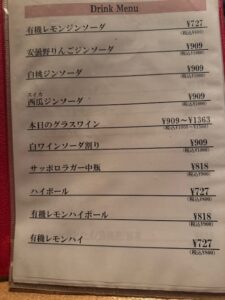 Drink Menu
有機レモンジンソーダ ¥727
(税込¥800)
安曇野りんごジンソーダ ¥909
(税込¥1000)
白桃ジンソーダ ¥909
(税込¥1000)
スイカ
西瓜ジンソーダ ¥909
(税込¥1000)
本日のグラスワイン ¥909～¥1363
(税込¥1000～¥1500)
白ワインソーダ割り ¥909
(税込¥1000)
サッポロラガー中瓶 ¥818
(税込¥900)
ハイボール ¥727
(税込¥800)
有機レモンハイボール ¥818
(税込¥900)
有機レモンハイ ¥727
(税込¥800)